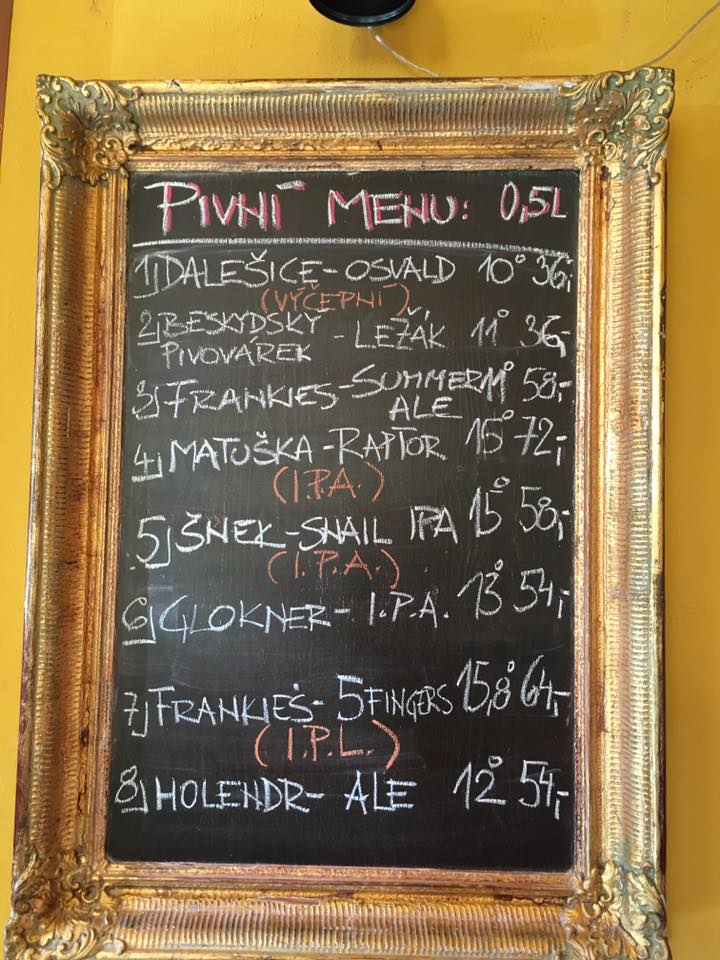 PIVNÍ MENU: 0,5L
1) DALEŠICE - OSVALD 10° 36,-
(VÝČEPNÍ)
2) BESKYDSKÝ PIVOVÁREK - LEŽÁK 11° 36,-
3) FRANKIES - SUMMER ALE 11° 58,-
4) MATUŠKA - RAPTOR 15° 72,-
(I.P.A.)
5) ŠNEK - SNAIL IPA 15° 58,-
(I.P.A.)
6) GLOKNER - I.P.A. 13° 54,-
7) FRANKIEŚ - 5 FINGERS 15,8° 64,-
(I.P.L.)
8) HOLENDR - ALE 12° 54,-